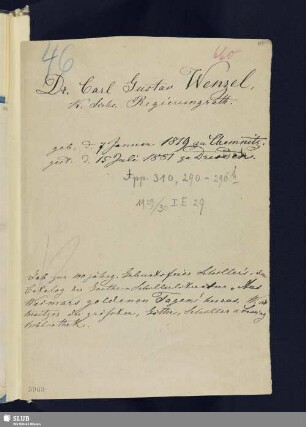 46
Dr. Carl Gustav Wenzel,
K. Sächs. Regierungsrath.
geb. d. 7 Januar 1819 zu Chemnitz,
gest. d. 15 Juli 1881 zu Dresden.
App. 310, 290-296h
Gab zur 100 jähr. Geburtsfeier Schiller's den
Katalog der Goethe- u. Schillerliteratur „Aus
Weimars goldenen Tagen" heraus,
Besitzer der größten Goethe, Schiller u.
bibliothek.
SLUB